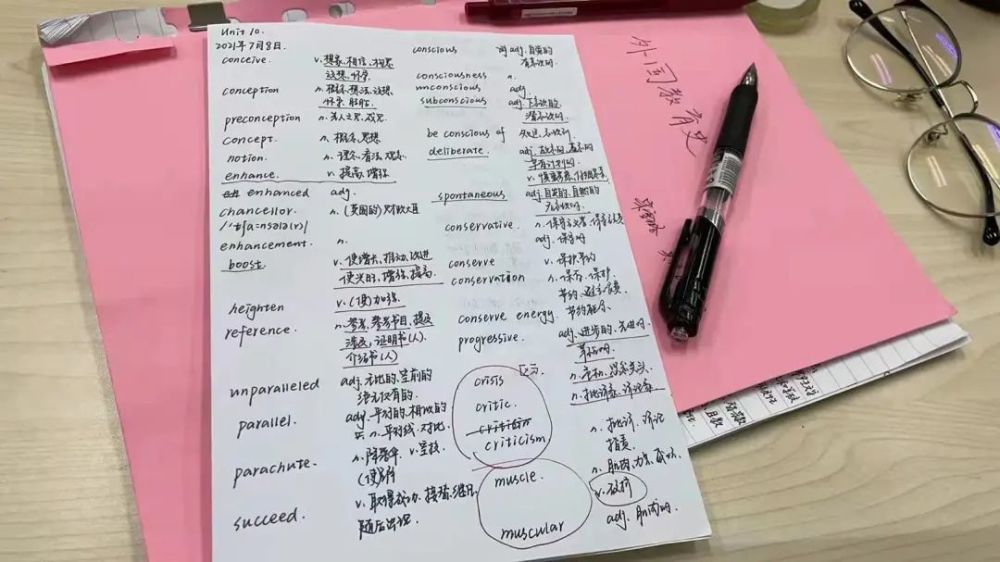 Unit 10.
2021年7月8日.
conceive v. 想象、相信、构思
设想、怀孕
conception n. 概念、想法、设想、
怀孕、胚胎
preconception n.
concept. n. 概念、思想
notion n. 理念、看法、观点
enhance. v. 提高、增强
enhanced adj.
chancellor. n. (英国的)财政大臣
enhancement. n.
boost v. 使增长、推动、改进
使兴旺、增强、提高
heighten v. (使)加强
reference. n. 参考、参考书目、提及
证明书(人)
介绍书(人)
unparalleled adj. 无比的、空前的
绝无仅有的.
parallel adj. 平行的、相似的
n. 平行线、对比
parachute. n. 降落伞 v. 空投
succeed. v. 取得成功、接替、继承
随后出现.
conscious adj. 自觉的
有意识的
consciousness n.
unconscious adj
subconscious adj. 下意识的
潜意识的.
be conscious of
deliberate. adj. 故意的、蓄意的
v.
spontaneous adj. 自发的、自然的
无意识的.
conservative. n.
adj. 保守的
conserve v. 保护、节约
conservation n. 保存、保护
节约
conserve energy. 节约能合
progressive. adj. 进步的、先进的
crisis 区分
n. 危机
critic. n. 批评家、评论家
criticism n. 批评、评论
指责
muscle. n. 肌肉、力量
v.
muscular adj. 肌肉的.
外国教育史